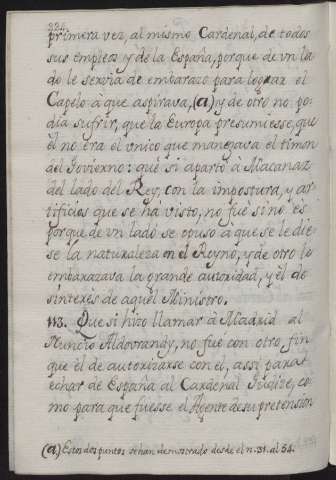 224.
primera vez, al mismo Cardenal, de todos
sus empleos y de la España, porque de vn la
do le servia de embarazo para lograr el
Capelo à que aspirava, (a) y de otro no po-
dia sufrir, que la Europa presumiesse, que
èl no era el vnico que manejava el timon
del Govierno: que si apartò à Macanaz
del lado del Rey, con la impostura, y ar-
tificios que se hà visto, no fuè sino es
porque de vn lado se opuso à que se le die-
se la naturaleza en el Reyno, y de otro le
embarazava la grande autoridad, y el de
sinterès de aquel Ministro.
113. Que si hizo llamar à Madrid al
Nuncio Aldovrandy, no fuè con otro fin
que el de autorizarse con el, assi para
echar de España al Cardenal Judice, co
mo para que fuesse el Agente de su pretension
(a) Estos dos puntos se han demostrado desde el n. 31. al 54.